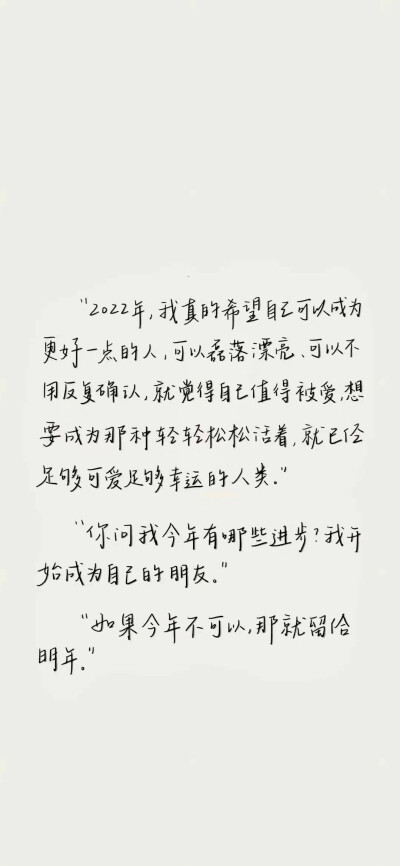 “2022年,我真的希望自己可以成为
更好一点的人,可以磊落漂亮、可以不
用反复确认,就觉得自己值得被爱,想
要成为那种轻轻松松活着,就已经
足够可爱足够幸运的人类。”
“你问我今年有哪些进步?我开
始成为自己的朋友。”
“如果今年不可以,那就留给
明年。”